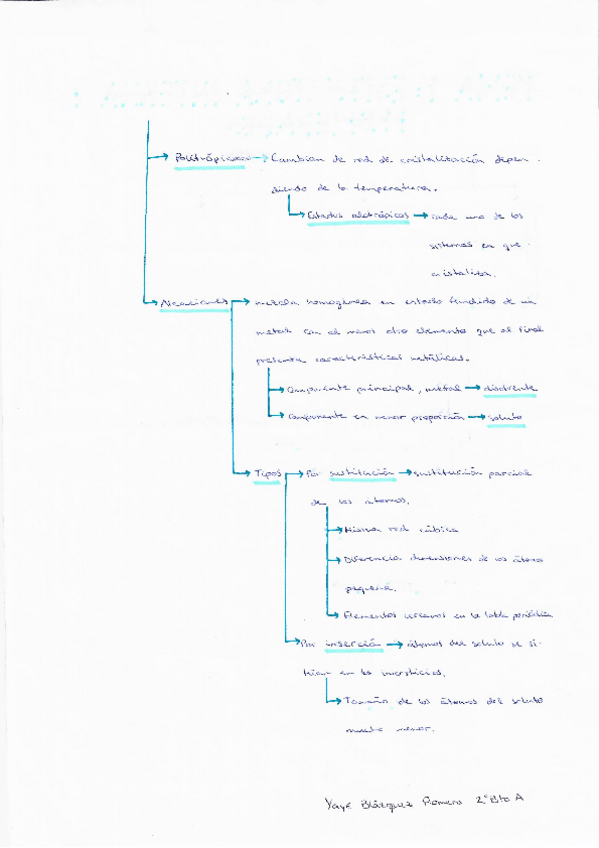 Politrópicos → Cambian de red de cristalización depen-
diendo de la temperatura.
Estados alotrópicos → cada uno de los
sistemas en que
cristaliza.
Aleaciones → mezcla homogénea en estado fundido de un
metal con al menos otro elemento que al final
presenta características metálicas.
Componente principal, metal → disolvente
Componente en menor proporción → soluto
Tipos → Por sustitución → sustitución parcial
de los átomos.
Misma red cúbica
Diferencia dimensiones de los átomos
pequeña.
Elementos cercanos en la tabla periódica
Por inserción → átomos del soluto se si-
túan en los intersticios.
Tamaño de los átomos del soluto
mucho menor.
Blázquez Romero 2º Bto A